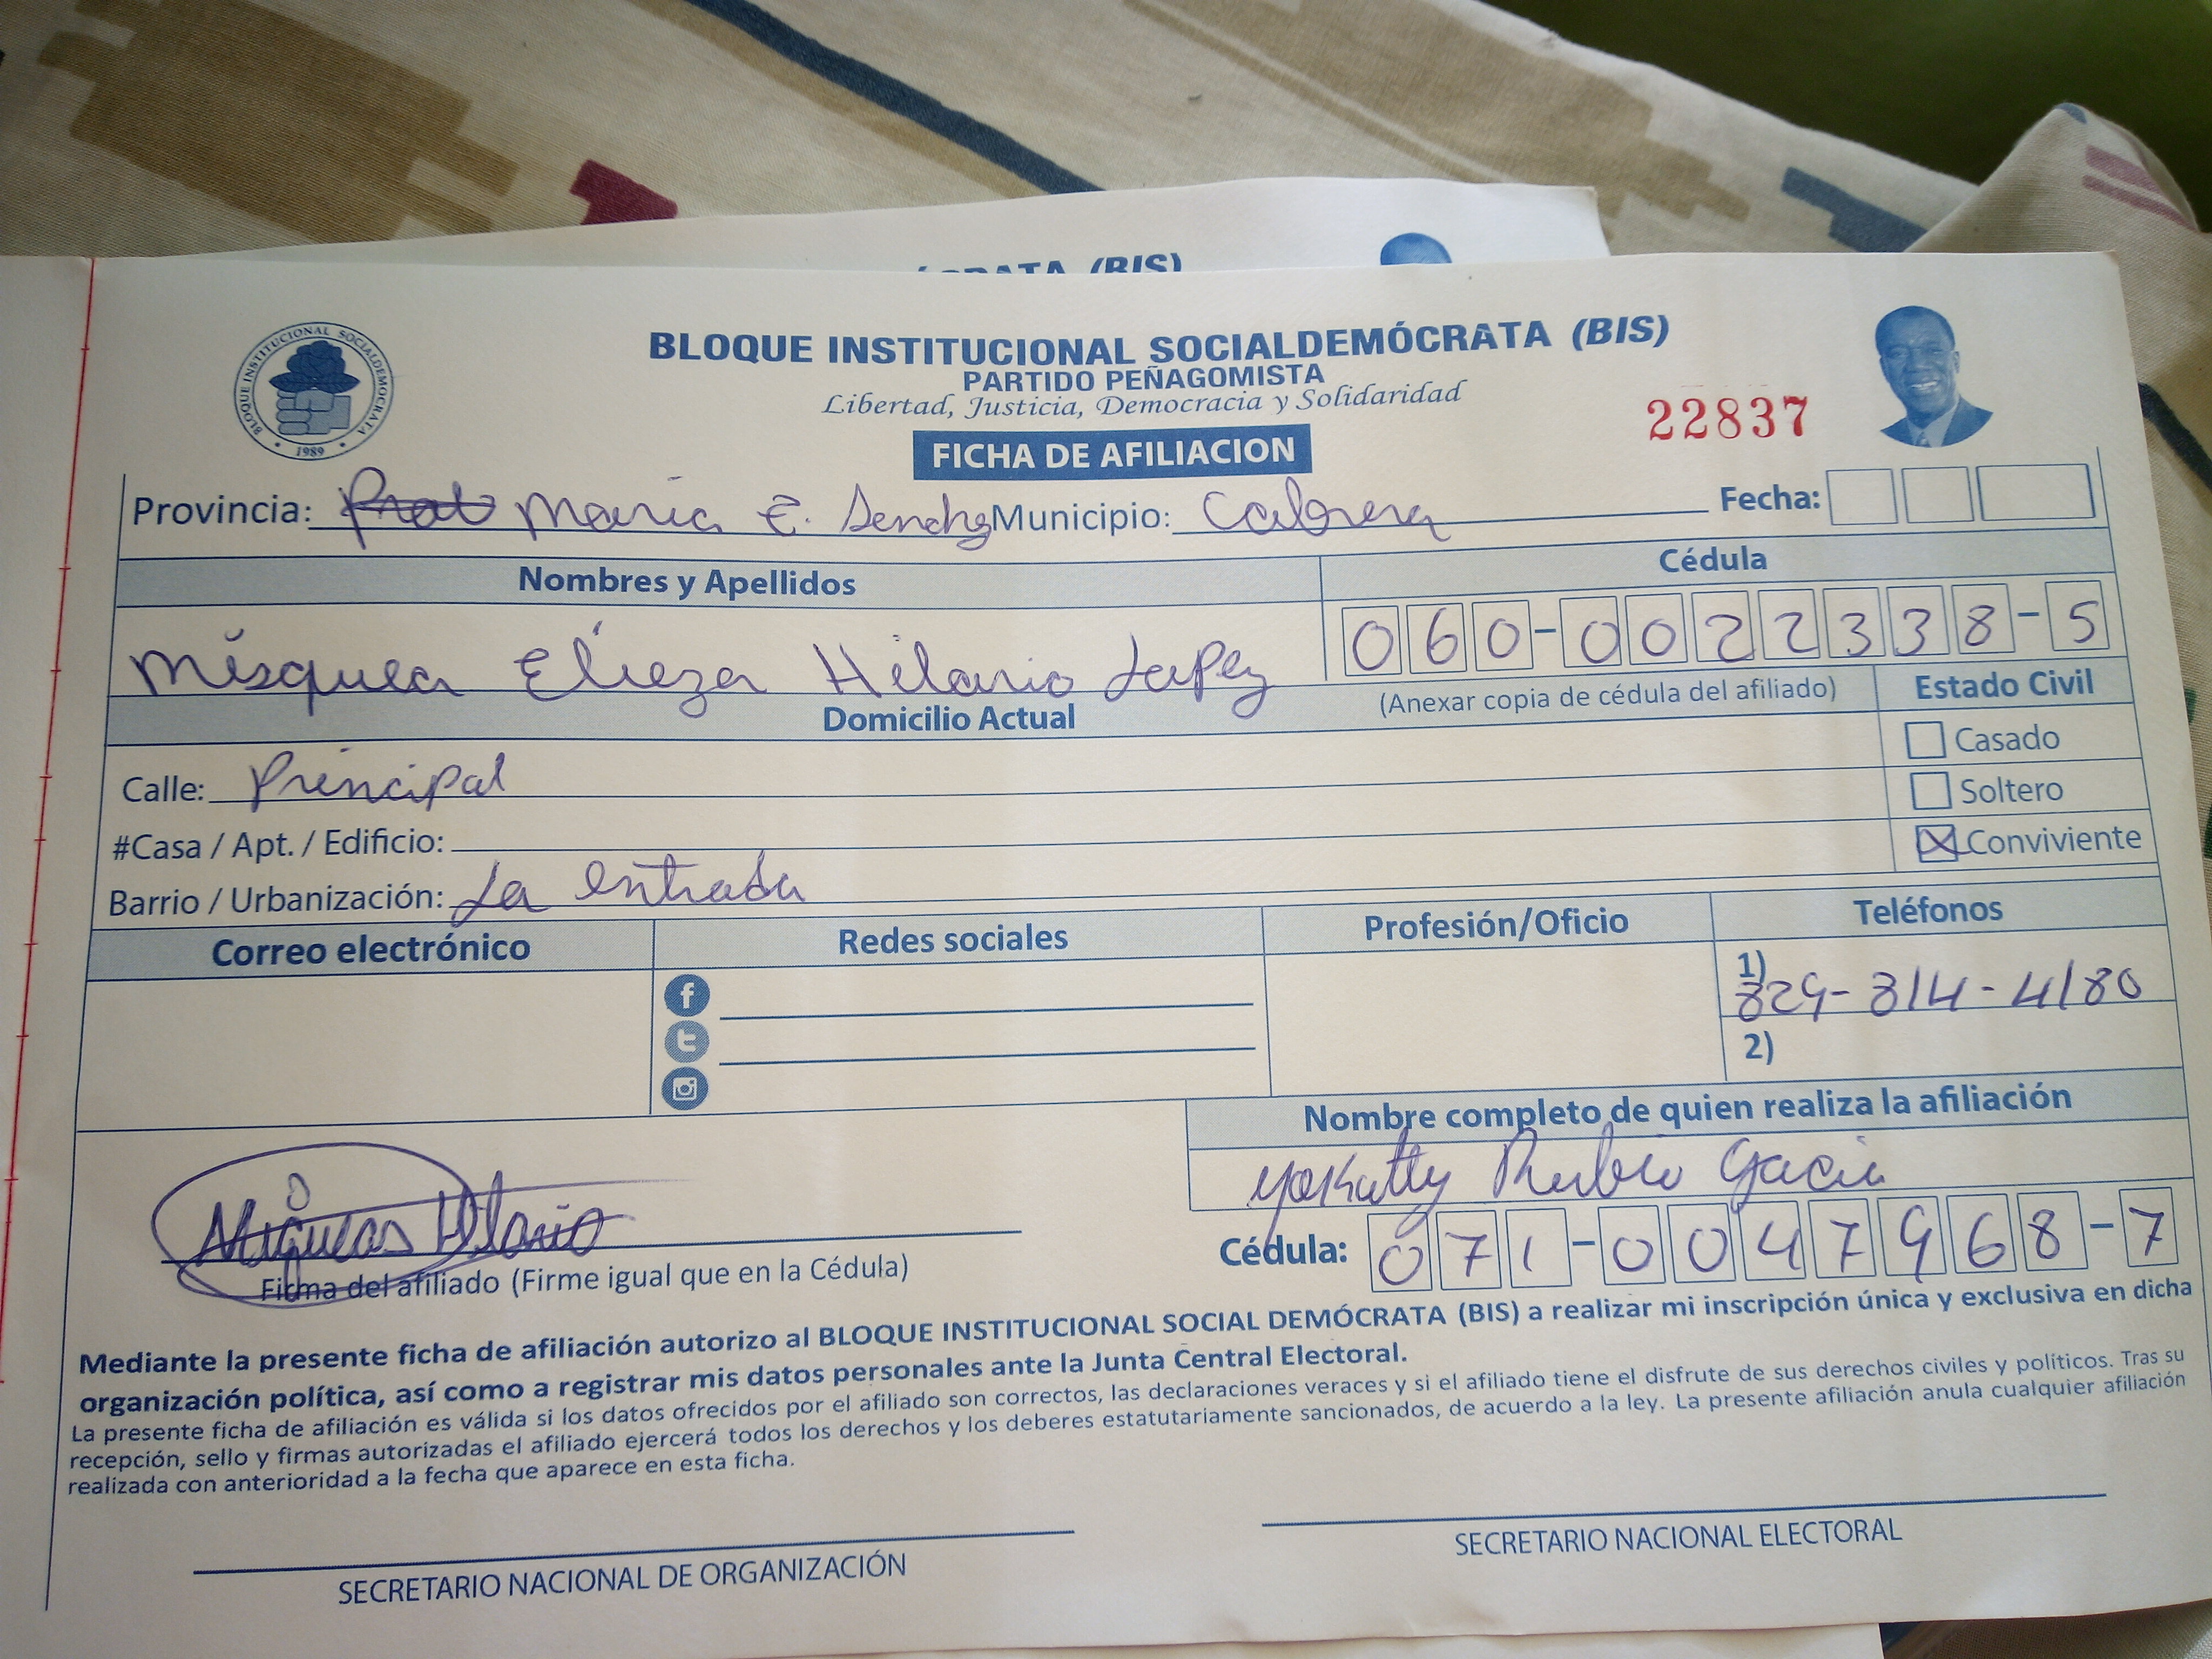 CRATA (BIS)
BLOQUE INSTITUCIONAL SOCIALDEMOCRATA
1989
BLOQUE INSTITUCIONAL SOCIALDEMÓCRATA (BIS)
PARTIDO PEÑAGOMISTA
Libertad, Justicia, Democracia y Solidaridad
22837
FICHA DE AFILIACION
Provincia: Maria E. Municipio: Cabrera Fecha:
Nombres y Apellidos Cédula
Elieza Hilario 060-0022338-5
(Anexar copia de cédula del afiliado) Estado Civil
Domicilio Actual
Casado
Calle: Principal
Soltero
#Casa / Apt. / Edificio:
Conviviente
Barrio / Urbanización: La entrada
Correo electrónico Redes sociales Profesión/Oficio Teléfonos
1) 829-314-4180
2)
Nombre completo de quien realiza la afiliación
Yokatty Rubio
Hilario
Cédula: 071-0047968-7
Firma del afiliado (Firme igual que en la Cédula)
Mediante la presente ficha de afiliación autorizo al BLOQUE INSTITUCIONAL SOCIAL DEMÓCRATA (BIS) a realizar mi inscripción única y exclusiva en dicha
organización política, así como a registrar mis datos personales ante la Junta Central Electoral.
La presente ficha de afiliación es válida si los datos ofrecidos por el afiliado son correctos, las declaraciones veraces y si el afiliado tiene el disfrute de sus derechos civiles y políticos. Tras su
recepción, sello y firmas autorizadas el afiliado ejercerá todos los derechos y los deberes estatutariamente sancionados, de acuerdo a la ley. La presente afiliación anula cualquier afiliación
realizada con anterioridad a la fecha que aparece en esta ficha.
SECRETARIO NACIONAL DE ORGANIZACIÓN
SECRETARIO NACIONAL ELECTORAL